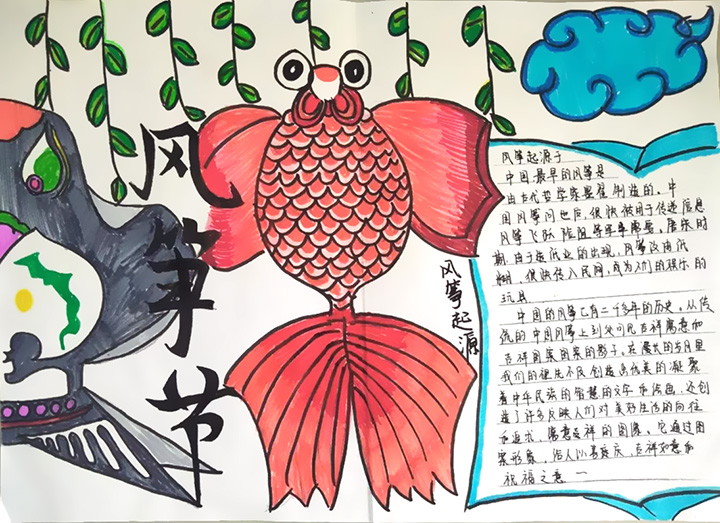 风筝节
风筝起源
风筝起源于
中国最早的风筝是
由古代哲学家墨翟制造的。中
国风筝问世后，很快被用于传递信息
飞跃险阻等军事需要。唐宋时
期由于造纸业的出现，风筝改由纸
糊，很快传入民间，成为人们的娱乐的
玩具
中国的风筝已有二千多年的历史。从传
统的中国风筝上到处可见吉祥寓意和
吉祥图案的影子。在漫长的岁月里
我们的祖先不仅创造出优美的凝聚
着中华民族的智慧的文字和绘画，还创
造了许多反映人们对美好生活的向往
和追求、寓意吉祥的图案。它通过图
案形象，给人以喜庆、吉祥如意和
祝福之意